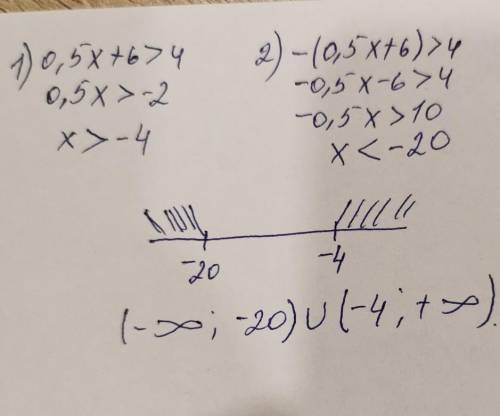 1) 0,5x+6>4
0,5x>-2
x>-4
2) -(0,5x+6)>4
-0,5x-6>4
-0,5x>10
x<-20
-20 -4
(-∞; -20)∪(-4; +∞).